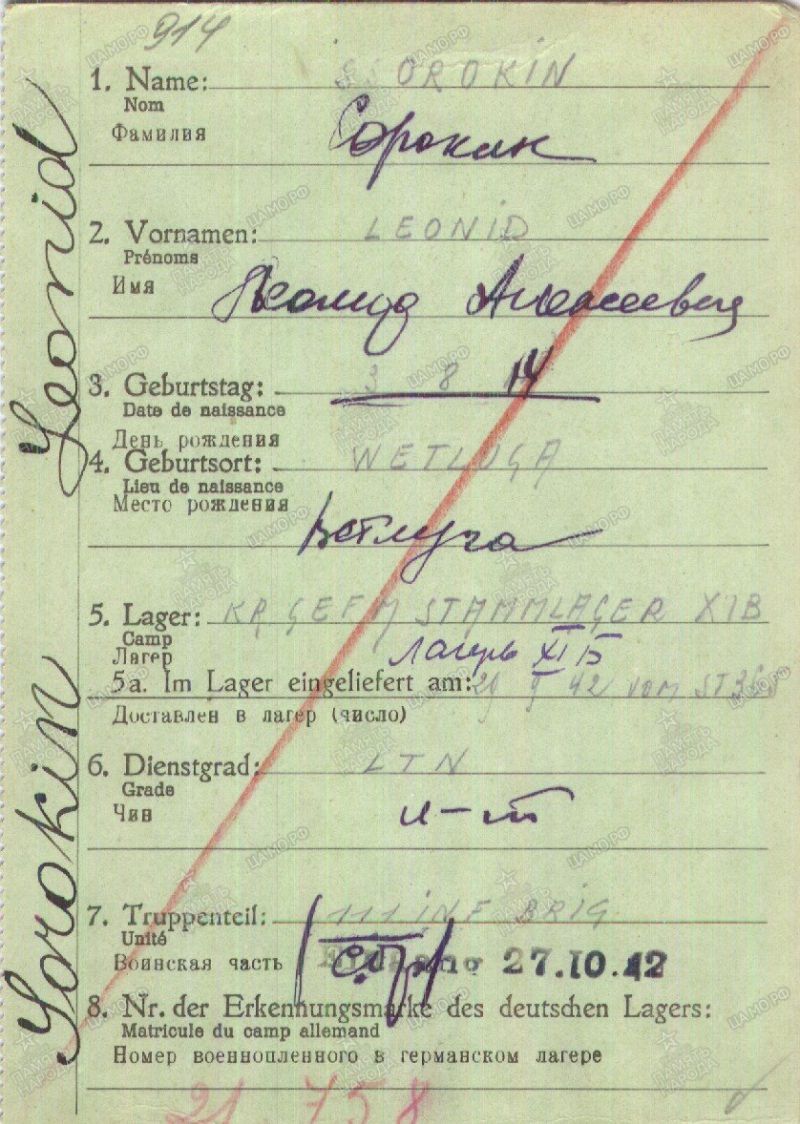 914
Sorokin Leonid
1. Name: SSOROKIN
Nom
Фамилия Сорокин
2. Vornamen: LEONID
Prénoms
Имя Леонид Алексеевич
3. Geburtstag: 3 8 14
Date de naissance
День рождения
4. Geburtsort: WETLUGA
Lieu de naissance
Место рождения Ветлуга
5. Lager: KR GEFM STAMMLAGER XIB
Camp
Лагер Лагерь XI Б
5a. Im Lager eingeliefert am: 29 9 42 vom ST 365
Доставлен в лагер (число)
6. Dienstgrad: LTN
Grade
Чин л-т
7. Truppenteil: 111 INF BRIG
Unité
Воинская часть 27.10.42
8. Nr. der Erkennungsmarke des deutschen Lagers:
Matricule du camp allemand
Номер военнопленного в германском лагере
21 758